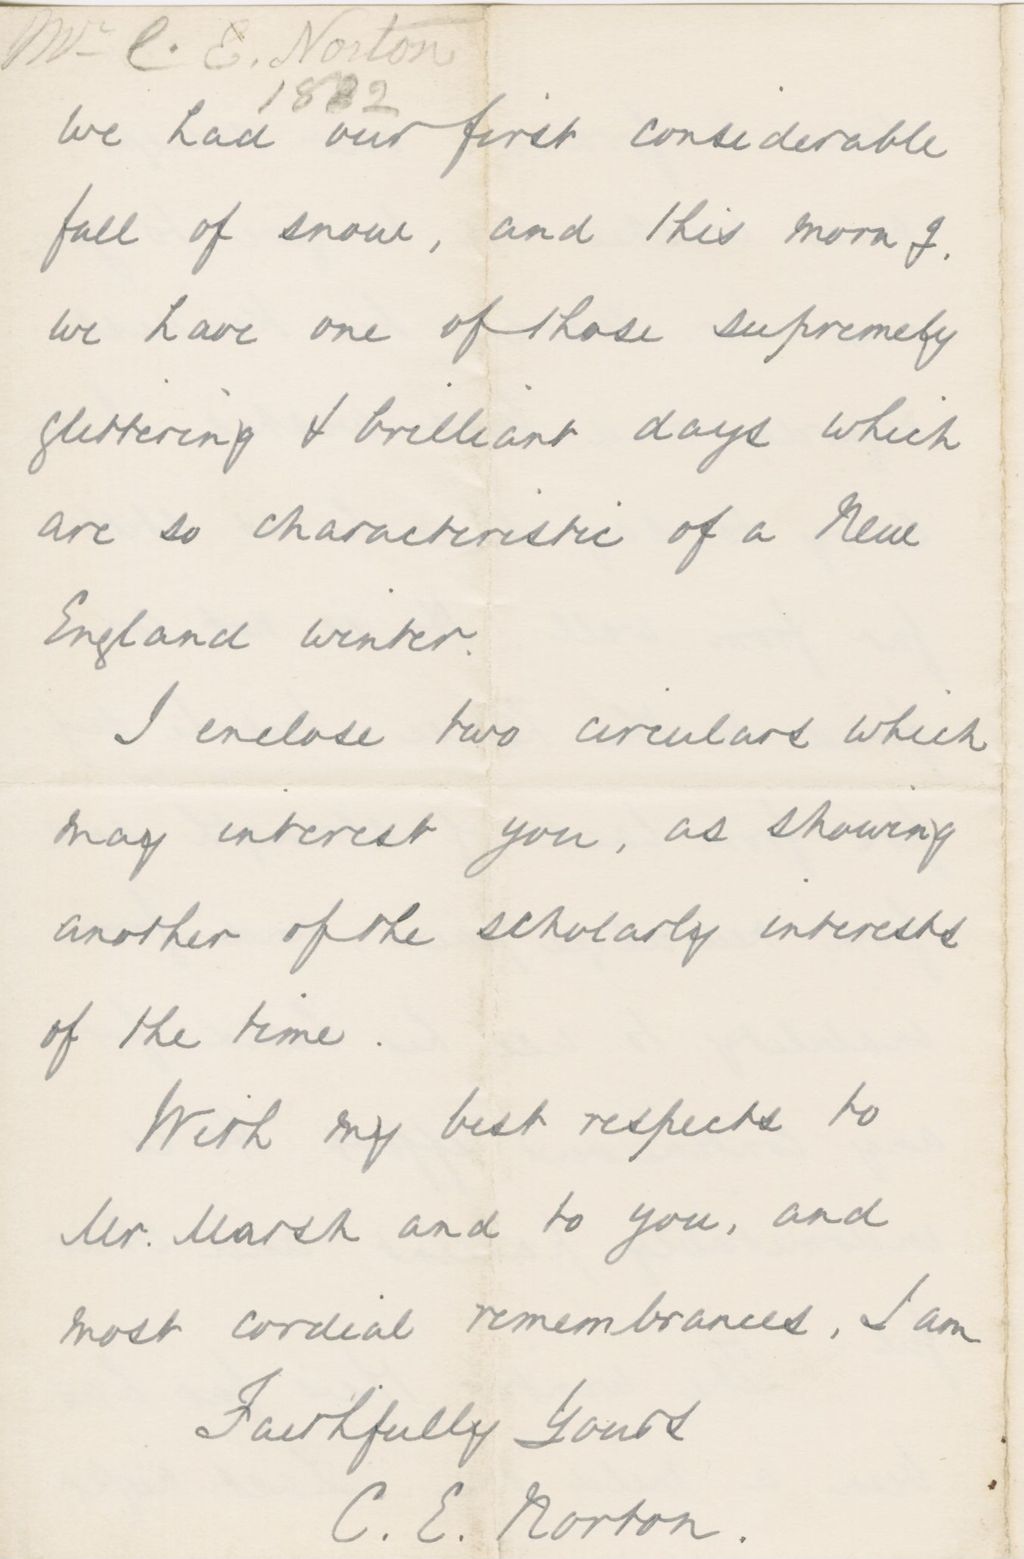 Mr C. E. Norton
1882
we had our first considerable
fall of snow, and this morng.
we have one of those supremely
glittering & brilliant days which
are so characteristic of a New
England winter.
I enclose two circulars which
may interest you, as showing
another of the scholarly interests
of the time.
With my best respects to
Mr. Marsh and to you, and
most cordial remembrances, I am
Faithfully Yours
C. E. Norton.